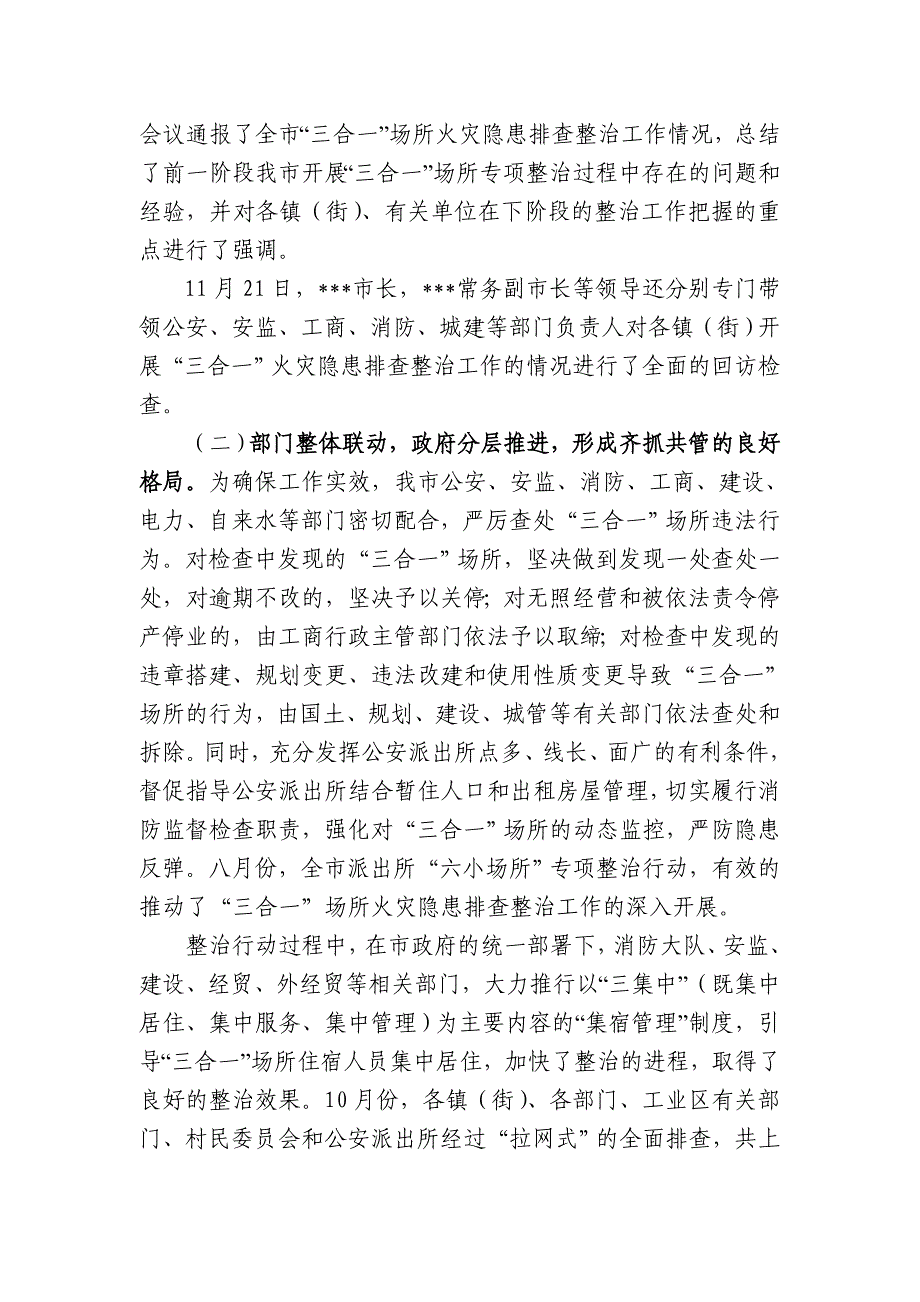 会议通报了全市“三合一”场所火灾隐患排查整治工作情况，总结
了前一阶段我市开展“三合一”场所专项整治过程中存在的问题和
经验，并对各镇（街）、有关单位在下阶段的整治工作把握的重
点进行了强调。
11月21日，***市长，***常务副市长等领导还分别专门带
领公安、安监、工商、消防、城建等部门负责人对各镇（街）开
展“三合一”火灾隐患排查整治工作的情况进行了全面的回访检
查。
（二）部门整体联动，政府分层推进，形成齐抓共管的良好
格局。为确保工作实效，我市公安、安监、消防、工商、建设、
电力、自来水等部门密切配合，严厉查处“三合一”场所违法行
为。对检查中发现的“三合一”场所，坚决做到发现一处查处一
处，对逾期不改的，坚决予以关停；对无照经营和被依法责令停
产停业的，由工商行政主管部门依法予以取缔；对检查中发现的
违章搭建、规划变更、违法改建和使用性质变更导致“三合一”
场所的行为，由国土、规划、建设、城管等有关部门依法查处和
拆除。同时，充分发挥公安派出所点多、线长、面广的有利条件，
督促指导公安派出所结合暂住人口和出租房屋管理，切实履行消
防监督检查职责，强化对“三合一”场所的动态监控，严防隐患
反弹。八月份，全市派出所“六小场所”专项整治行动，有效的
推动了“三合一” 场所火灾隐患排查整治工作的深入开展。
整治行动过程中，在市政府的统一部署下，消防大队、安监、
建设、经贸、外经贸等相关部门，大力推行以“三集中”（既集中
居住、集中服务、集中管理）为主要内容的“集宿管理”制度，引
导“三合一”场所住宿人员集中居住，加快了整治的进程，取得了
良好的整治效果。10月份，各镇（街）、各部门、工业区有关部
门、村民委员会和公安派出所经过“拉网式”的全面排查，共上